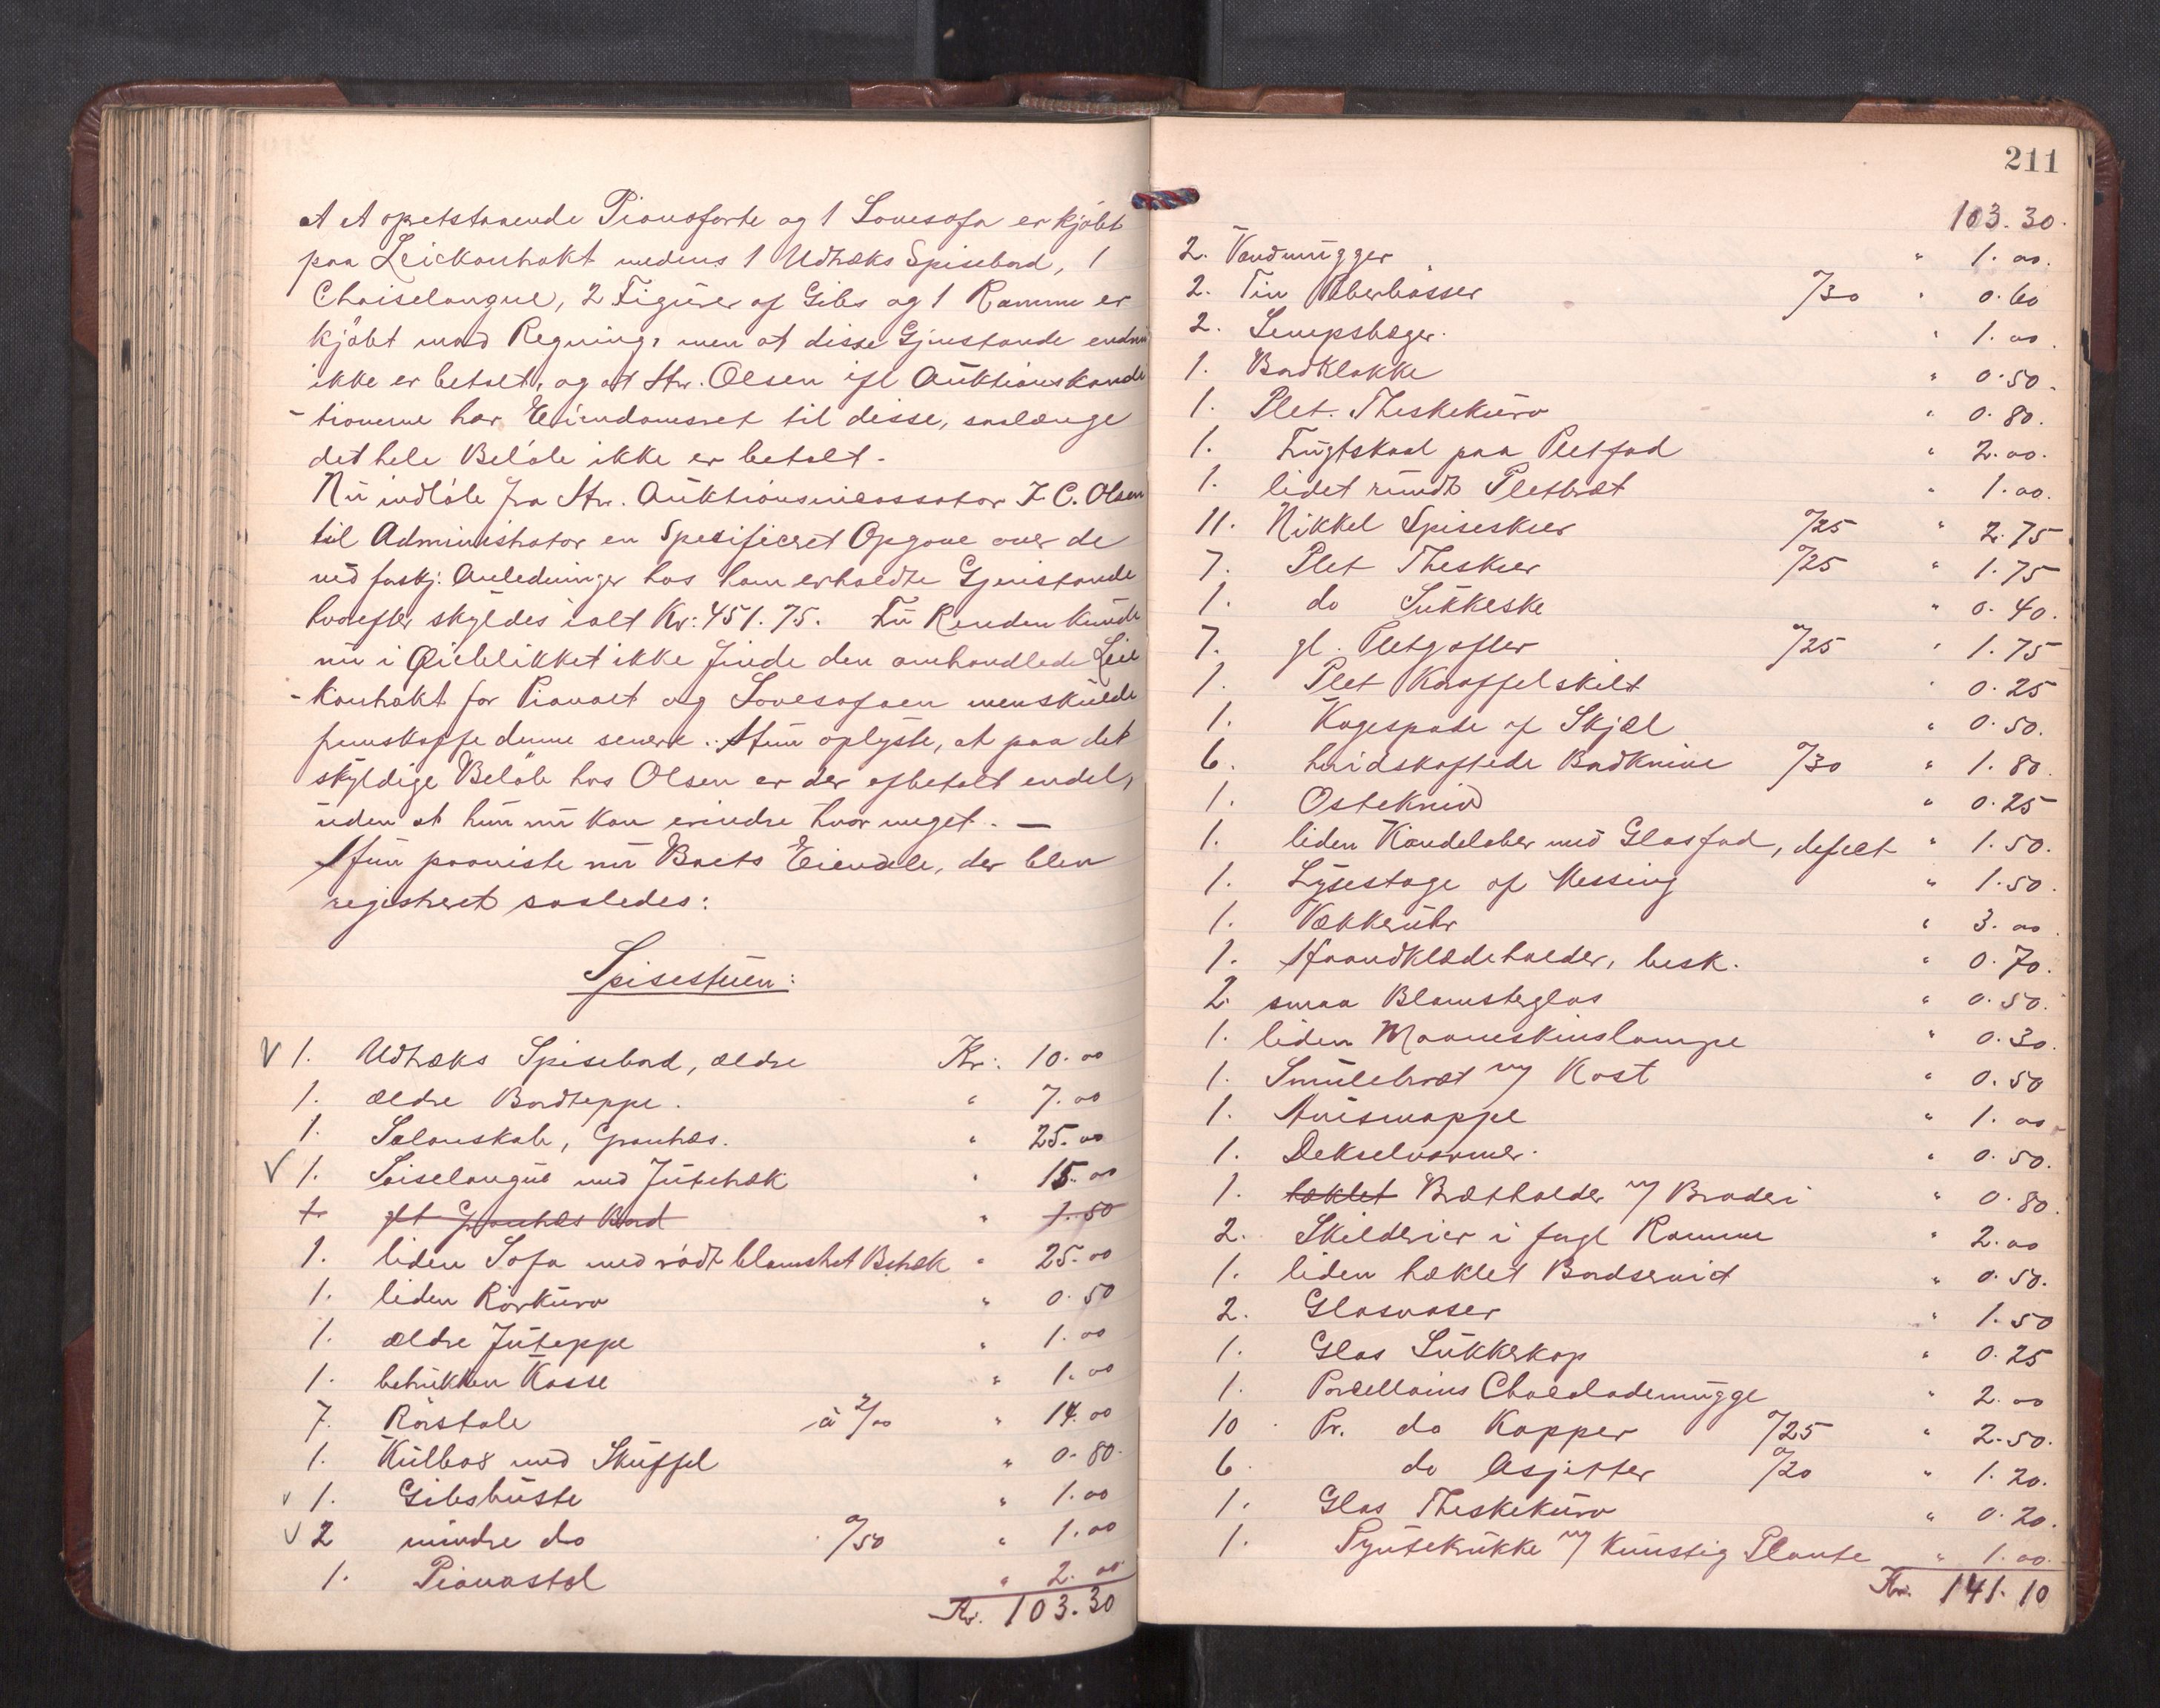 At et opretstaaende Pianoforte og 1 Sovesofa er kjøbt
paa Leiekontrakt medens 1 Udtræks Spisebord, 1
Chaiselongue, 2 Figurer af Gibs og 1 Ramme er
kjøbt med Regning, men at disse Gjenstande endnu
ikke er betalt, og at Hr. Olsen ifl Auktionskondi
-tionerne har Eiendomsret til disse, saalænge
det hele Beløb ikke er betalt.
Nu indløb fra Hr. Auktionsincassator F. C. Olsen
til Administrator en Specificeret Opgave over de
ved forskj. Anledninger hos ham erholdte Gjenstande
hvorefter skyldes ialt Kr: 451.75. Fru Renden kunde
nu i Øieblikket ikke finde den omhandlede Leie
-kontrakt for Pianoet og Sovesofaen men skulde
fremskaffe denne senere. Hun oplyste, at paa det
skyldige Beløb hos Olsen er der afbetalt endel,
uden at hun nu kan erindre hvor meget. —
Hun paaviste nu Boets Eiendele, der blev
registreret saaledes:
Spisestuen:
V 1. Udtræks Spisebord, ældre Kr: 10.00
1. ældre Bordteppe. " 7.00
1. Salonskab, Grantræs. " 25.00
V 1. Saiselongue med Jutetræk " 15.00
1. Grantræs Bord " 1.50
1. liden Sofa med rødt blomstret Betræk " 25.00
1. liden Rørkurv " 0.50
1. ældre Juteppe " 1.00
1. betrukken Kasse " 1.00
7. Rørstole à 2/00 " 14.00
1. Kulbox med Skuffel " 0.80.
v 1. Gibsbuste " 1.00
V 2 mindre do a/50 " 1.00
1. Pianostol " 2.00
Kr. 103.30
211
103.30.
2. Vandmugger " 1.00.
2. Tin Peberbøsser a/30 " 0.60
2. Sempsbæger. " 1.00.
1. Bordklokke " 0.50.
1. Plet. Theskekurv " 0.80.
1. Frugtskaal paa Pletfad " 2.00.
1. lidet rundt Pletbræt " 1.00.
11. Nikkel Spiseskeer a/25 " 2.75
7. Plet Theskeer a/25 " 1.75
1. do Sukkeske " 0.40.
7. gl. Pletgafler a/25 " 1.75
1. Plet Karaffelskilt " 0.25
1. Kagespade af Skjæl " 0.50.
6. hvidskaftede Bordknive a/30 " 1.80.
1. Ostekniv " 0.25
1. liden Kandelaber med Glasfad, defect " 1.50.
1. Lysestage af Messing " 1.50.
1. Vækkeruhr " 3.00.
1. Haandklædeholder, besk. " 0.70.
2. smaa Blomsterglas " 0.50.
1. liden Maaneskinslampe " 0.30.
1. Smulebræt m/ Kost " 0.50
1. Avismappe " 1.00.
1. Dekselvarmer. " 0.50.
1. hæklet Brætholder m/ Broderi " 0.80.
2. Skilderier i forgl Ramme " 2.00
1. liden hæklet Bordserviet " 0.50.
2. Glasvaser " 1.50
1. Glas Sukkerkop " 0.25
1. Porcellains Chocolademugge " 2.00
10 Pr. do Kopper a/25 " 2.50.
6. do Asjetter a/20 " 1.20.
1. Glas Theskekurv " 0.20.
1. Pyntekrukke m/ Kunstig Plante " 1.00.
Kr. 141.10